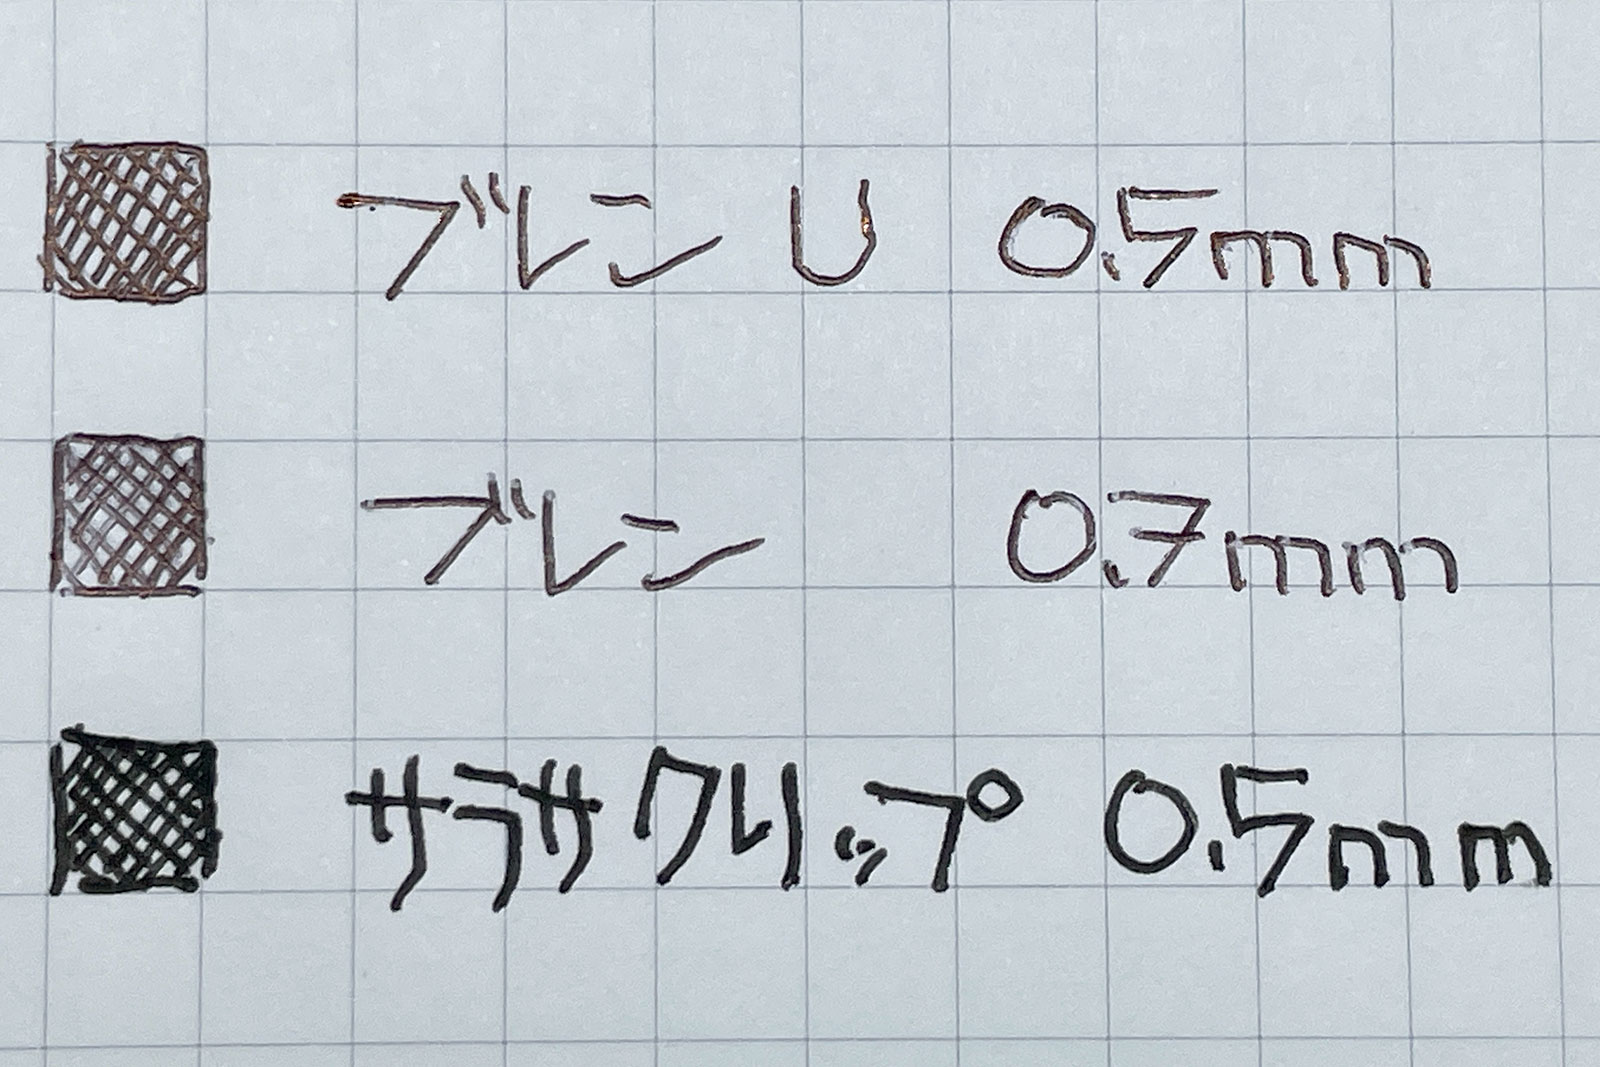 ブレン U 0.5mm
ブレン 0.7mm
サラサクリップ 0.5mm